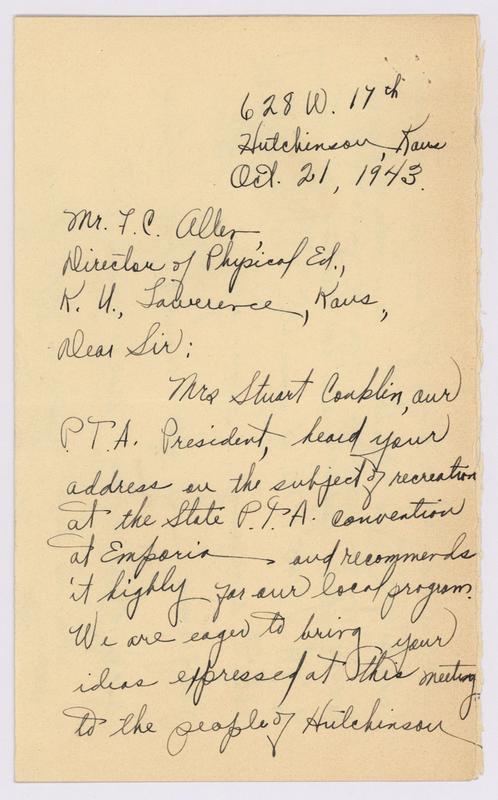 628 W. 17th
Hutchinson, Kans
Oct. 21, 1943.
Mr. F. C. Allen
Director of Physical Ed.,
K. U., Lawerence, Kans,
Dear Sir:
Mrs Stuart Conklin, our
P.T.A. President, heard your
address on the subject of recreation
at the State P.T.A. convention
at Emporia and recommends
it highly for our local program.
We are eager to bring your
ideas expressed at this meeting
to the people of Hutchinson